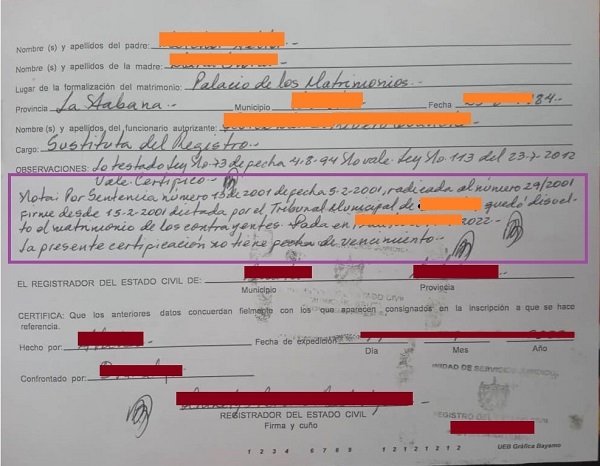 Nombre (s) y apellidos del padre:
Nombre (s) y apellidos de la madre:
Lugar de la formalización del matrimonio: Palacio de los Matrimonios.
Provincia La Habana. Municipio Fecha 84
Nombre(s) y apellidos del funcionario autorizante:
Cargo: Sustituta del Registro
OBSERVACIONES: Lo testado Ley No 73 de fecha 4-8-94 No vale. Ley No 113 del 23-7-2012
Vale. Certifico.
Nota: Por Sentencia número de 2001 de fecha 5-2-2001, radicada al número 29/2001
firme desde 15-2-2001 dictada por el Tribunal Municipal de quedó disuel-
to el matrimonio de los contrayentes. Dada en 2022.
La presente certificación no tiene fecha de vencimiento.
EL REGISTRADOR DEL ESTADO CIVIL DE:
Municipio Provincia
CERTIFICA: Que los anteriores datos concuerdan fielmente con los que aparecen consignados en la inscripción a que se hace
referencia.
Hecho por: Fecha de expedición:
Día Mes Año
Confrontado por:
UNIDAD DE SERVICIOS JURIDICOS
REGISTRADOR DEL ESTADO CIVIL
Firma y cuño
REGISTRO DEL
ESTADO CIVIL
1 2 3 4 6 7 8 9 1 2 1 2 1 2 1 2
UEB Gráfica Bayamo